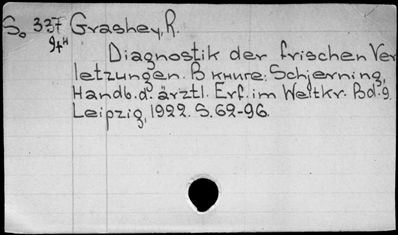 So 337 Grashey, R.
94H
Diagnostik der frischen Ver
letzungen. В книге: Schjerning,
Handb. d. ärztl. Erf. im Weltkr. Bd. 9.
Leipzig, 1922. S. 62-96.